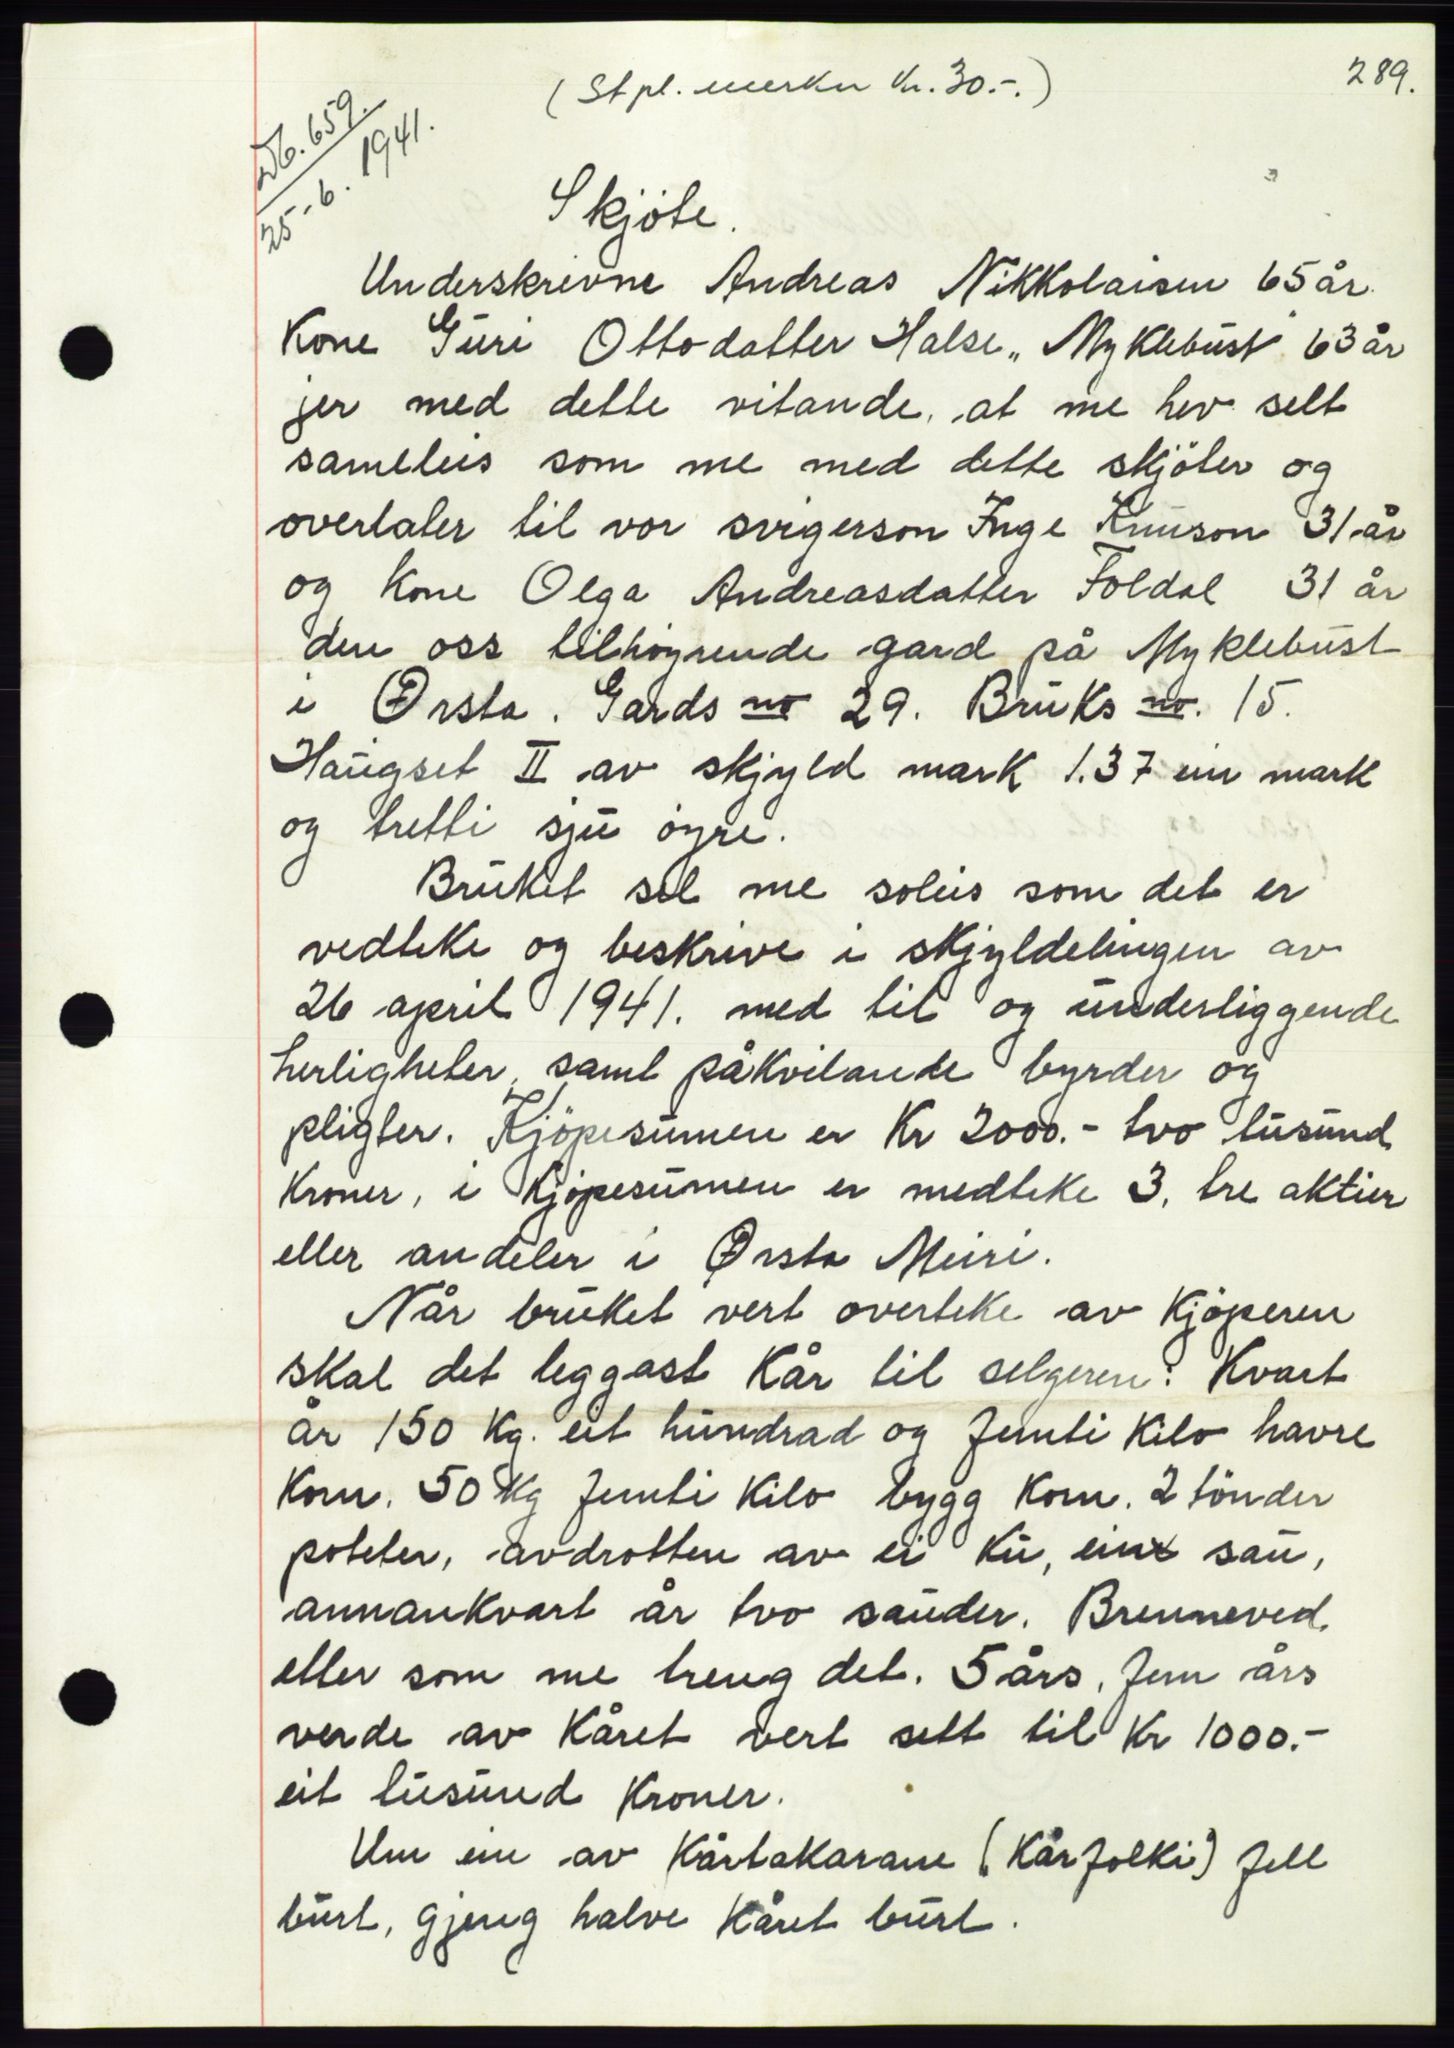 289.
(Stpl. merker Kr. 30.-.)
Db. 659.
25-6. 1941.
Skjöte.
Underskrivne Andreas Nikkolaisen 65 år
Kone Guri Ottodatter Halse „Myklebust" 63 år
jer med dette vitande, at me hev selt
sameleis som me med dette skjöter og
overlater til vor svigerson Inge Knuson 31 år
og Kone Olga Andreasdatter Foldal 31 år
den oss tilhöyrende gard på Myklebust
i Ørsta. Gards no 29. Bruks no. 15.
Haugset II av skjyld mark 1.37 ein mark
og tretti sju öyre.
Bruket sel me soleis som det er
vedteke og beskrive i skjyldelingen av
26 april 1941. med til og underliggende
herligheter, samt påkvilande byrder og
pligter. Kjöpesumen er Kr 2000.- tvo tusund
Kroner, i Kjöpesumen er medteke 3. tre aktier
eller andeler i Ørsta Meiri.
Når bruket vert overteke av Kjöperen
skal det leggast Kår til selgeren: Kvart
år 150 Kg. eit hundrad og femti Kilo havre
Korn. 50 Kg femti Kilo bygg Korn. 2 tönder
poteter, avdrotten av ei Ku, einx sau,
annankvart år tvo sauder. Brenneved.
etter som me treng det. 5 års, fem års
verde av Kåret vert sett til Kr 1000.-
eit tusund Kroner.
Um ein av Kårtakarane (Kårfolki) fell
burt, gjeng halve Kåret burt.